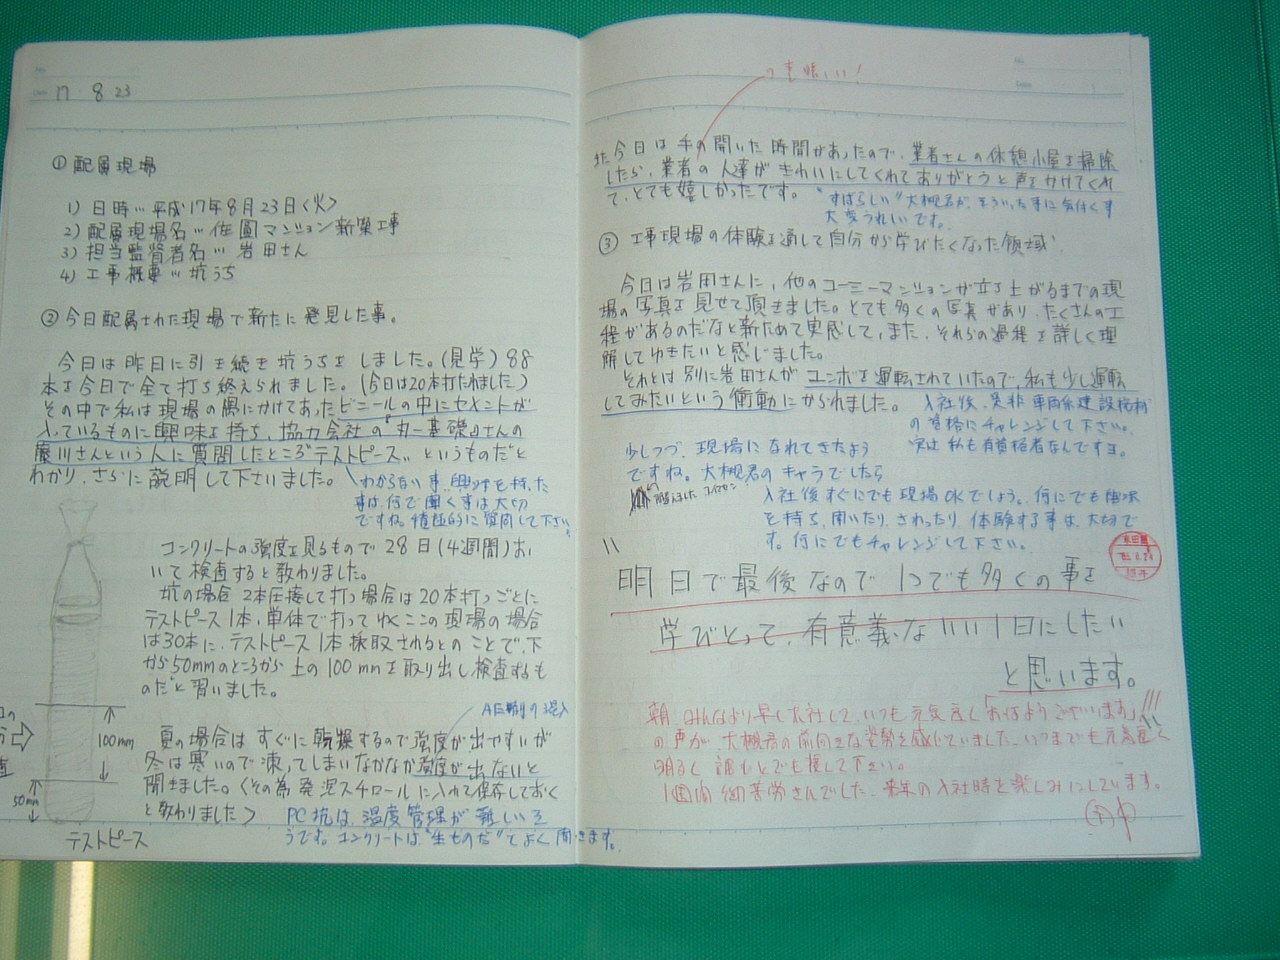 17 8 23
① 配属現場
1) 日時…平成17年8月23日<火>
2) 配属現場名…佐圃マンション新築工事
3) 担当監督者名…岩田さん
4) 工事概要…坑うち
② 今日配属された現場で新たに発見した事。
今日は昨日に引き続き坑うちをしました。(見学) 88
本を今日で全て打ち終えられました。(今日は20本打たれました)
その中で私は現場の隅にかけてあったビニールの中にセメントが
入っているものに興味を持ち、協力会社の『丸一基礎』さんの
廣川さんという人に質問したところ“テストピース”というものだと
わかり、さらに説明して下さいました。
わからない事、興味を持った
事は何でも聞く事は大切
ですね。積極的に質問して下さい。
コンクリートの強度を見るもので28日(4週間)お
いて検査すると教わりました。
坑の場合 2本圧接して打つ場合は20本打つごとに
テストピース1本、単体で打ってゆくここの現場の場合
は30本に、テストピース1本採取されるとのことで、下
から50mmのところから上の100mmを取り出し検査するも
のだと習いました。
AE剤の混入
夏の場合はすぐに乾燥するので強度が出やすいが
冬は寒いので凍ってしまいなかなか強度が出ないと
聞きました。<その為発泡スチロールに入れて保存しておく
と教わりました>
PC坑は、温度管理が難しいそ
うです。コンクリートは“生ものだ”とよく聞きます。
100mm
50mm
テストピース
素晴しい!
また今日は手の開いた時間があったので、業者さんの休憩小屋を掃除
したら、業者の人達がきれいにしてくれてありがとうと声をかけてくれ
て、とても嬉しかったです。
“すばらしい”大槻君が、そういった事に気付く事
大変うれしいです。
③ 工事現場の体験を通して自分から学びたくなった領域
今日は岩田さんに、他のユーミーマンションが立ち上がるまでの現
場の写真を見せて頂きました。とても多くの写真があり、たくさんの工
程があるのだなと新ためて実感して、また、それらの過程を詳しく理
解してゆきたいと感じました。
それとは別に岩田さんがユンボを運転されていたので、私も少し運転
してみたいという衝動にかられました。
入社後、是非車両系建設機械
の資格にチャレンジして下さい。
実は私も有資格者なんですヨ。
少しづつ、現場になれてきたよう
ですね。大槻君のキャラでしたら
入社後すぐにでも現場OKでしょう。何にでも興味
を持ち、聞いたり、さわったり、体験する事は、大切で
す。何にでもチャレンジして下さい。
明日で最後なので1つでも多くの事を
学びとって、有意義ないい1日にしたい
と思います。
朝、みんなより早く出社して、いつも元気良く「おはようございます」!!!
の声が、大槻君の前向きな姿勢を感じていました。いつまでも元気良く
明るく誰もとでも接して下さい。
1週間御苦労さんでした。来年の入社時を楽しみにしています。